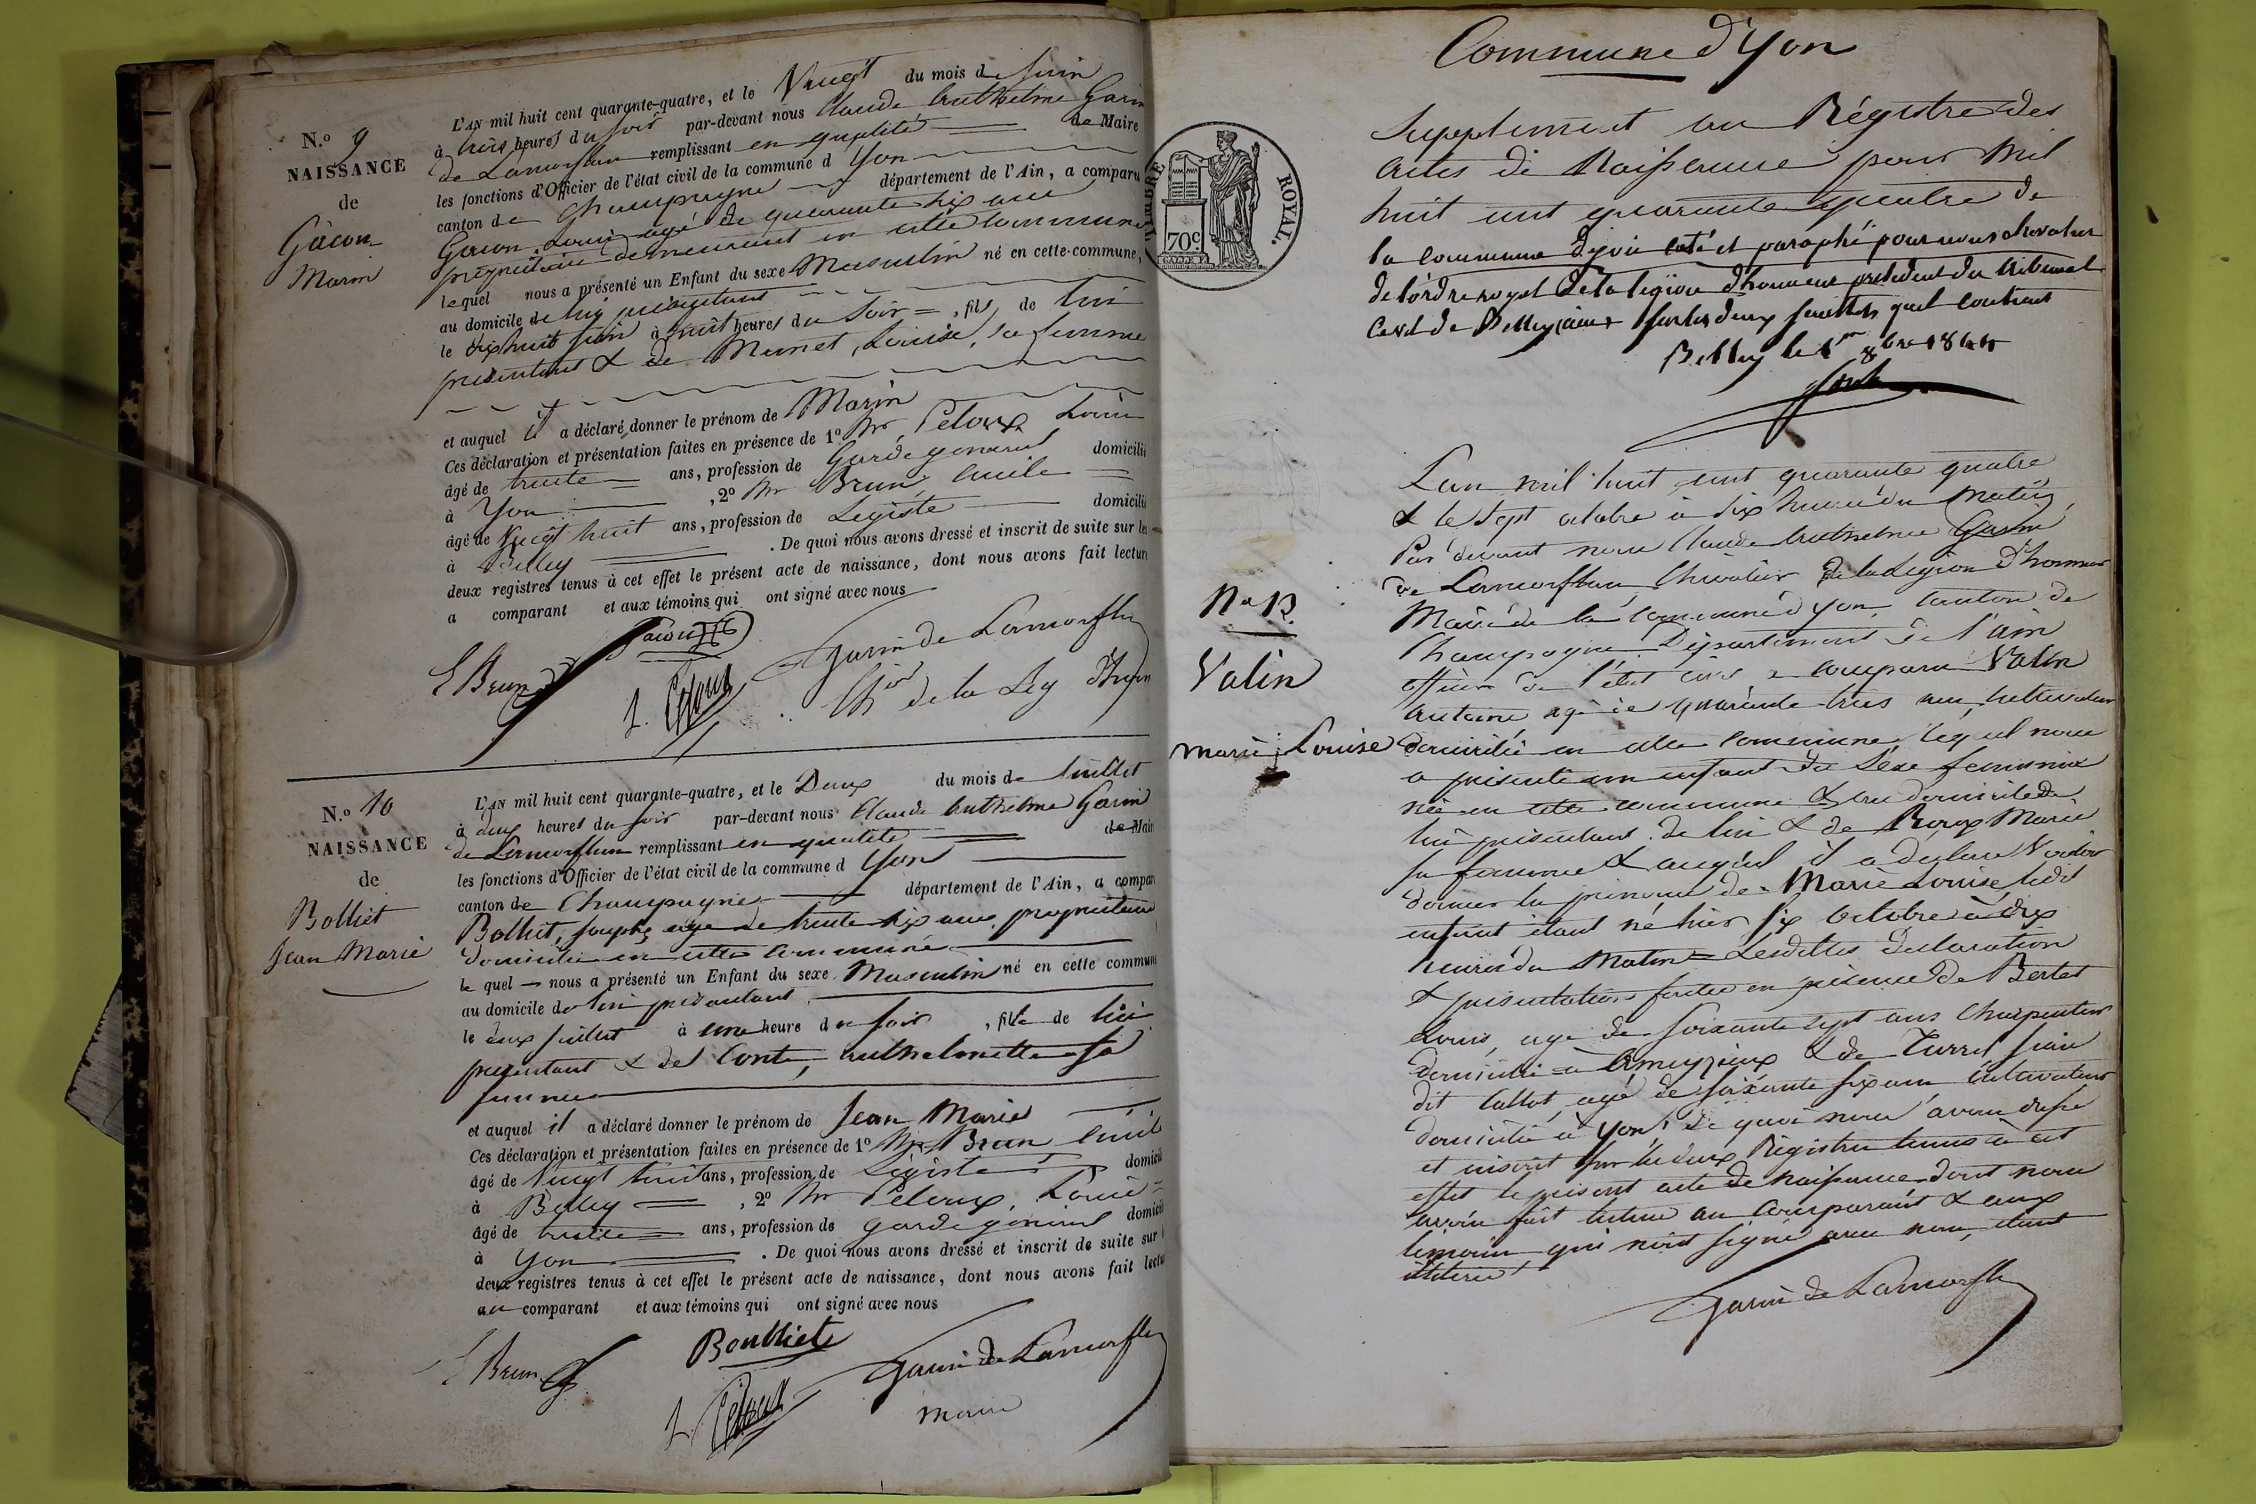 N.o 9
NAISSANCE
de
Gâcon
Marin
L'AN mil huit cent quarante-quatre, et le Vingt du mois de juin
à trois heures du soir par-devant nous Claude Anthelme Garin
de Lamorflan remplissant en qualité de Maire
les fonctions d'Officier de l'état civil de la commune d Yon
canton de Champagne département de l'Ain, a comparu
Gacon Louis agé de quarante six ans
propriétaire demeurant en cette commune
lequel nous a présenté un Enfant du sexe Masculin né en cette commune,
au domicile de lui présentant
le dix huit juin à huit heures du soir, fils de lui
présentant & de Munet, Louise, sa femme
et auquel il a déclaré donner le prénom de Marin
Ces déclaration et présentation faites en présence de 1o Mr Peloux Louis
âgé de trente ans, profession de Garde général domicilié
à Yon, 2o Mr Brun, Emile
âgé de Vingt huit ans, profession de Légiste domicilié
à Belley. De quoi nous avons dressé et inscrit de suite sur les
deux registres tenus à cet effet le présent acte de naissance, dont nous avons fait lecture
a comparant et aux témoins qui ont signé avec nous
E Brun
Gacon
L. Peloux
Garin de Lamorflan
Chier de la Lég d'hon
N.o 10
NAISSANCE
de
Bolliet
Jean Marie
L'AN mil huit cent quarante-quatre, et le Deux du mois de Juillet
à deux heures du soir par-devant nous Claude Anthelme Garin
de Lamorflan remplissant en qualité de Mair
les fonctions d'Officier de l'état civil de la commune d Yon
canton de Champagne département de l'Ain, a compar
Bolliet, Joseph, agé de trente six ans, propriétaire
domicilié en cette commune
le quel nous a présenté un Enfant du sexe Masculin né en cette commune
au domicile de lui présentant
le deux juillet à une heure du soir, fils de lui
présentant & de Conte, anthelmette sa
femme
et auquel il a déclaré donner le prénom de Jean Marie
Ces déclaration et présentation faites en présence de 1o Mr Brun Emile
âgé de Vingt huit ans, profession de Légiste domicili
à Belley, 2o Mr Peloux, Louis
âgé de trente ans, profession de garde général domicili
à Yon. De quoi nous avons dressé et inscrit de suite sur
deux registres tenus à cet effet le présent acte de naissance, dont nous avons fait lectu
au comparant et aux témoins qui ont signé avec nous
E Brun
Boulliet
L. Peloux
Garin de Lamorflan
maire
Commune d'Yon
TIMBRE ROYAL.
70c.
Supplement au Régistre des
actes de Naissance pour Mil
huit cent quarante quatre de
la commune d'yon coté et paraphé par nous chevalier
de l'ordre royal de la légion d'honneur président du tribunal
civil de Belley (ain) sur les deux feuillets quil contient
Belley le 1er 8bre 1844
No 13.
Valin
Marie Louise
L'an mil huit cent quarante quatre
& le sept octobre à dix heures du matin,
Par devant nous Claude Anthelme Garin
de Lamorflan, Chevalier de la Légion d'honneur
Maire de la commune d'yon, canton de
Champagne Département de l'ain
officier de l'état civil, a comparu Valin
antoine agé de quarante trois ans, cultivateur
domicilié en cette commune, lequel nous
a présenté un enfant du sexe féminin
né en cette commune & au domicile de
lui présentant de lui & de Roux Marie
sa femme & auquel il a déclaré Vouloir
donner les prénoms de Marie Louise ledit
enfant étant né hier six octobre à dix
heures du Matin = Lesdittes déclaration
& présentation faites en présence de Bertet
Louis, agé de soixante sept ans Charpentier
domicilié à Ameyzieux & de Turrel jean
dit Callot, agé de soixante six ans, cultivateur
domicilié à yon, de quoi nous avons dressé
et inscrit sur les deux Régistres tenus à cet
effet le présent acte de naissance dont nous
avons fait lecture au comparant & aux
témoins qui n'ont signé avec nous, étant
illitérés
Garin de Lamorflan